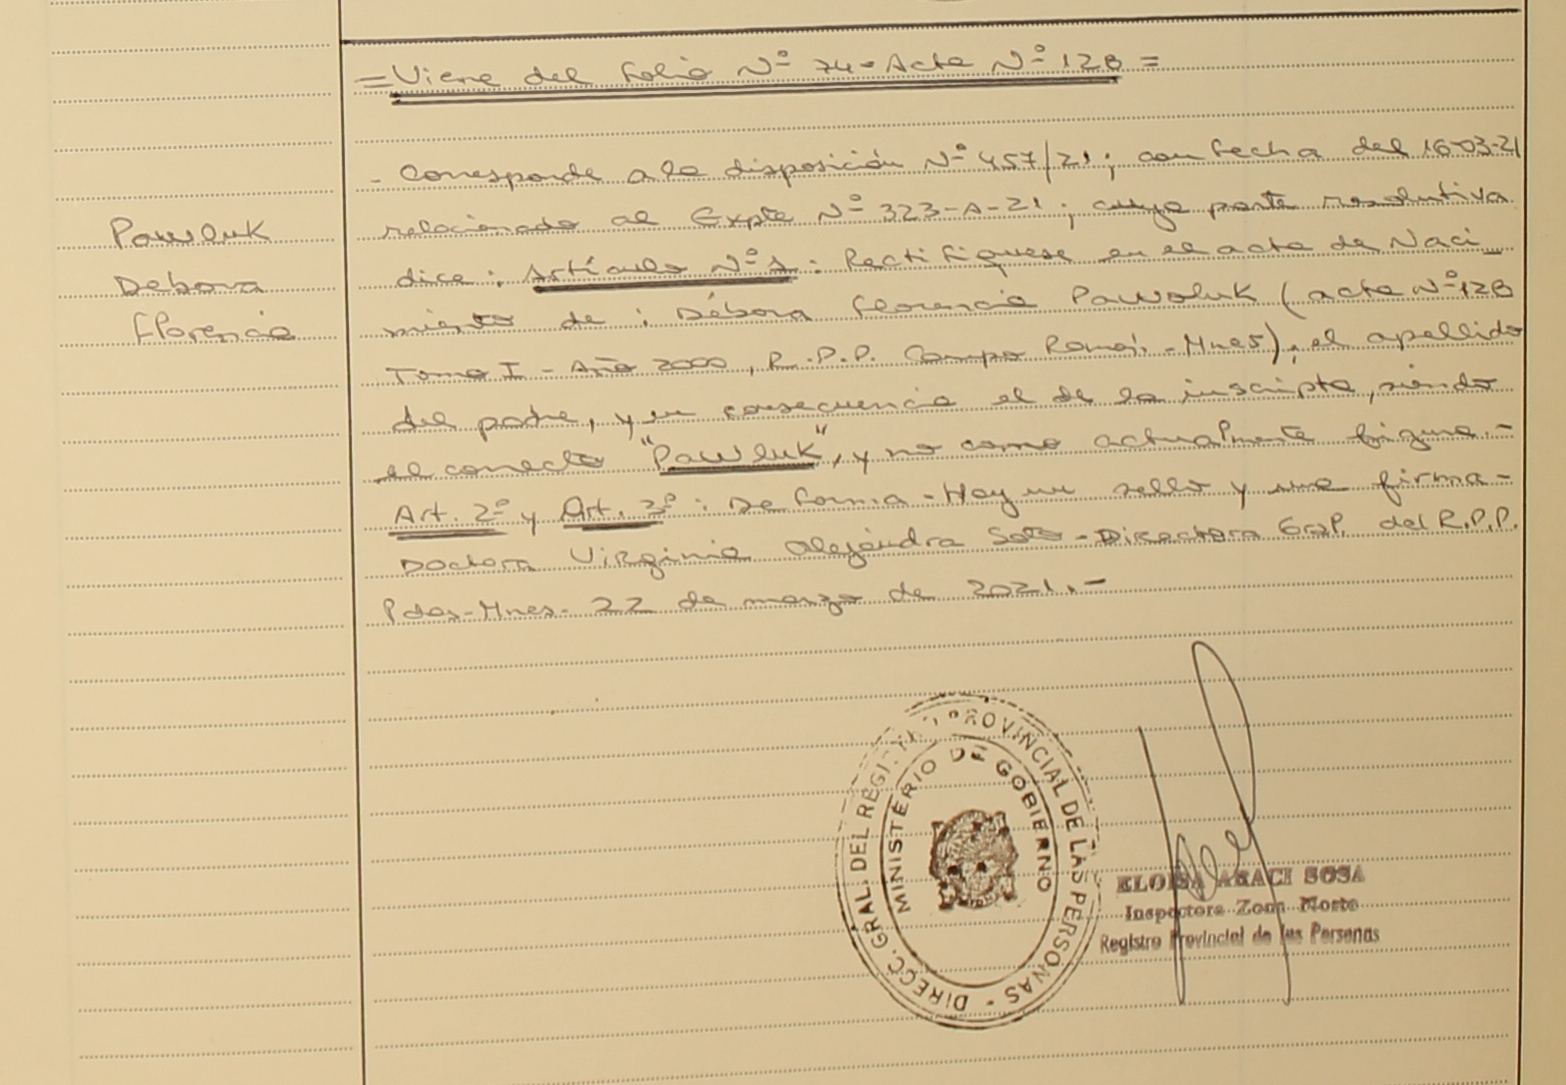 = Viene del folio Nº 74 - Acta Nº 128 =
Pawluk
Debora
Florencia
- Corresponde a la disposición Nº 457/21; con fecha del 16-03-21
relacionado al Expte Nº 323-A-21; cuya parte resolutiva
dice: Artículo Nº 1: Rectifíquese en el acta de Naci
miento de: Débora Florencia Pawoluk (acta Nº 128
Tomo I - Año 2000, R.P.P. Campo Ramón - Mnes), el apellido
del padre, y en consecuencia el de la inscripta, siendo
el correcto "Pawluk", y no como actualmente figura.-
Art. 2º y Art. 3º: De forma - Hay un sello y una firma-
Doctora Virginia Alejandra Soto - Directora Gral. del R.P.P.
Pdas-Mnes- 22 de marzo de 2021.-
DIRECC. GRAL. DEL REGISTRO PROVINCIAL DE LAS PERSONAS -
MINISTERIO DE GOBIERNO
ELOISA ARACI SOSA
Inspectora Zona Norte
Registro Provincial de las Personas